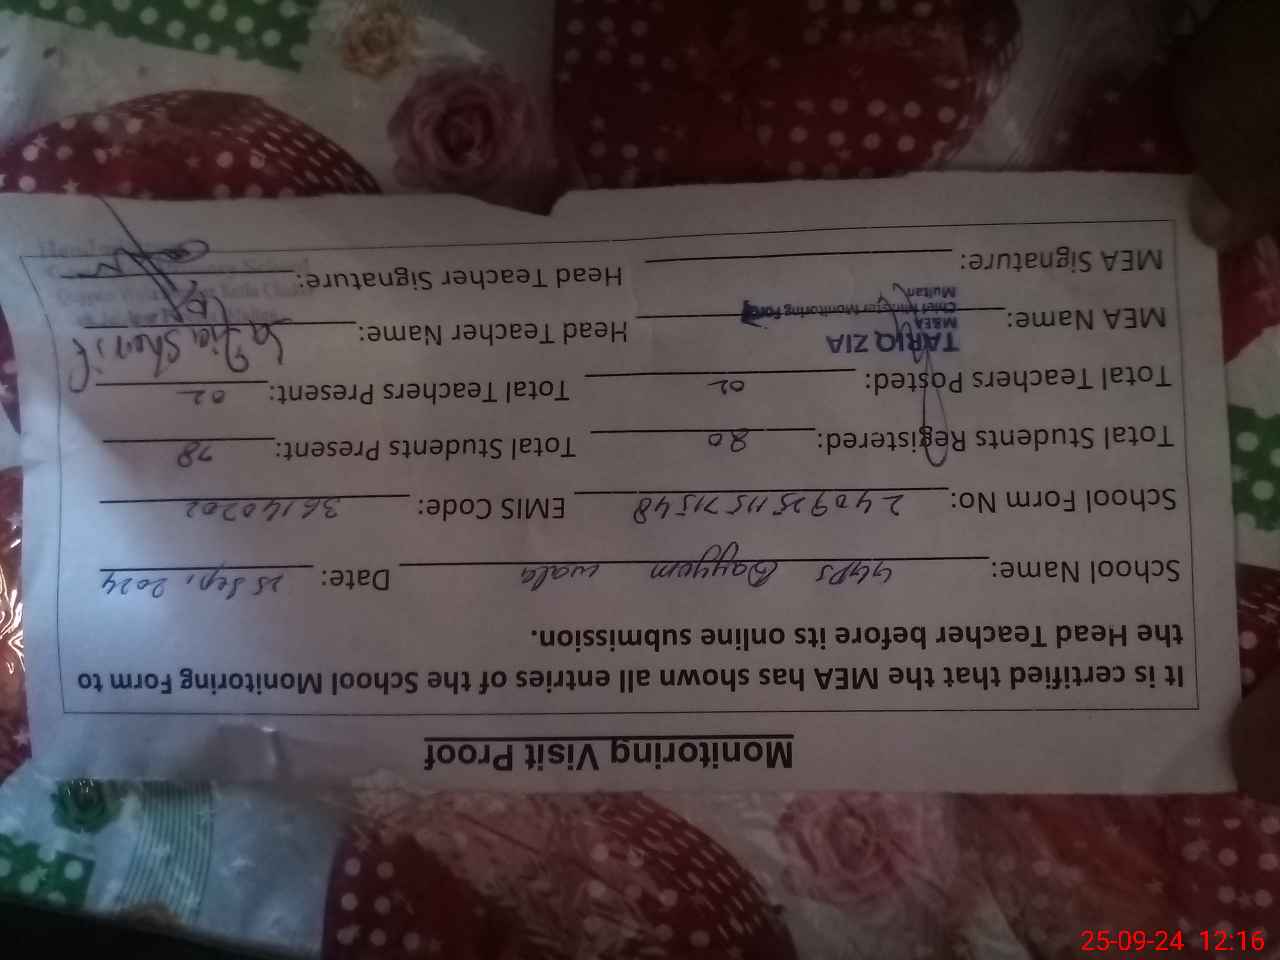 Monitoring Visit Proof
It is certified that the MEA has shown all entries of the School Monitoring Form to
the Head Teacher before its online submission.
School Name: GGPS Qayyum wala Date: 25 Sep, 2024
School Form No: 24092511571548 EMIS Code: 36140202
Total Students Registered: 80 Total Students Present: 78
Total Teachers Posted: 02 Total Teachers Present: 02
MEA Name: TARIQ ZIA
M&EA
Chief Minister Monitoring Force
Multan
Head Teacher Name: Safia Sherif
MEA Signature: Head Teacher Signature:
25-09-24 12:16